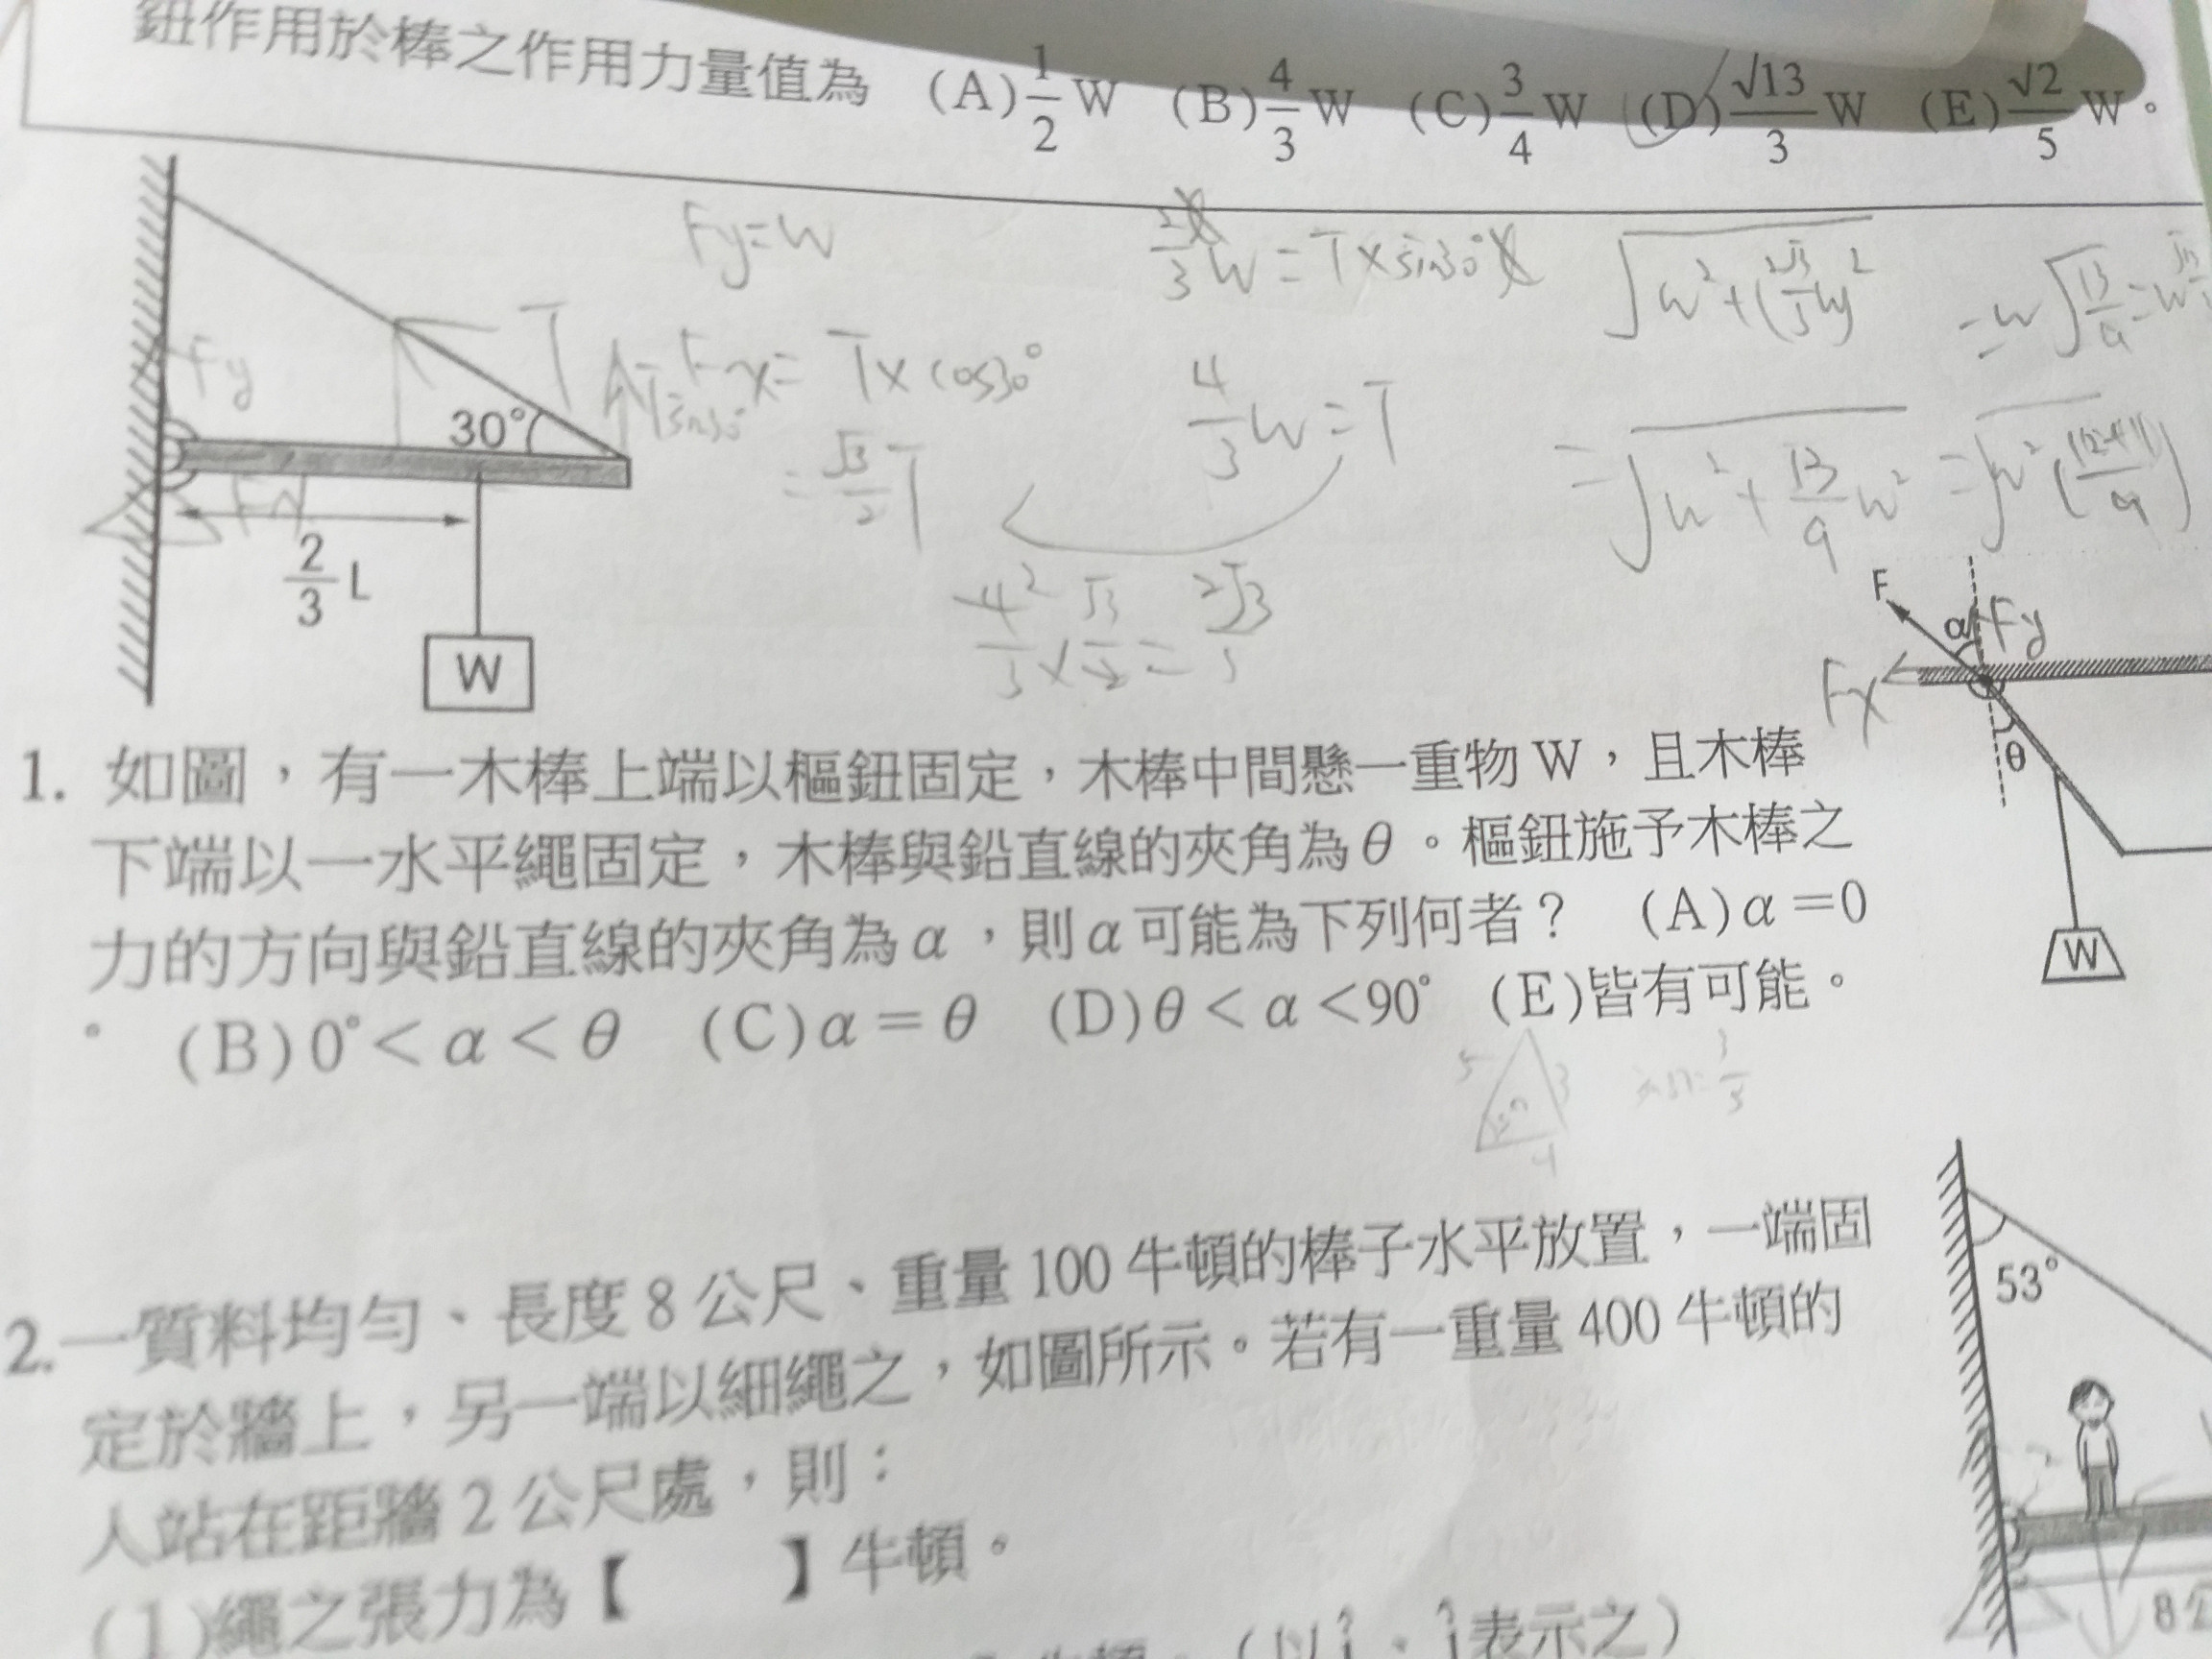 鈕作用於棒之作用力量值為 (A)1/2 W (B)4/3 W (C)3/4 W (D)√13/3 W (E)√2/5 W。
Fy=W
Fx= T×cos30°
= √3/2 T
2/3 W = T×sin30°
4/3 W = T
4/3 × √3/2 = 2√3/3
√(W²+(2√3/3 W)²)
= √(W²+13/9 W²)
Fy
T
Tsin30°
30°
Fx
2/3 L
W
F
α
Fy
Fx
θ
W
1. 如圖,有一木棒上端以樞鈕固定,木棒中間懸一重物 W,且木棒
下端以一水平繩固定,木棒與鉛直線的夾角為 θ。樞鈕施予木棒之
力的方向與鉛直線的夾角為 α,則 α 可能為下列何者? (A) α =0
。 (B) 0°< α < θ (C) α = θ (D) θ < α <90° (E)皆有可能。
5
3
4
2.一質料均勻、長度 8 公尺、重量 100 牛頓的棒子水平放置,一端固
定於牆上,另一端以細繩之,如圖所示。若有一重量 400 牛頓的
人站在距牆 2 公尺處,則:
(1)繩之張力為【 】牛頓。
表示之)
53°
8公